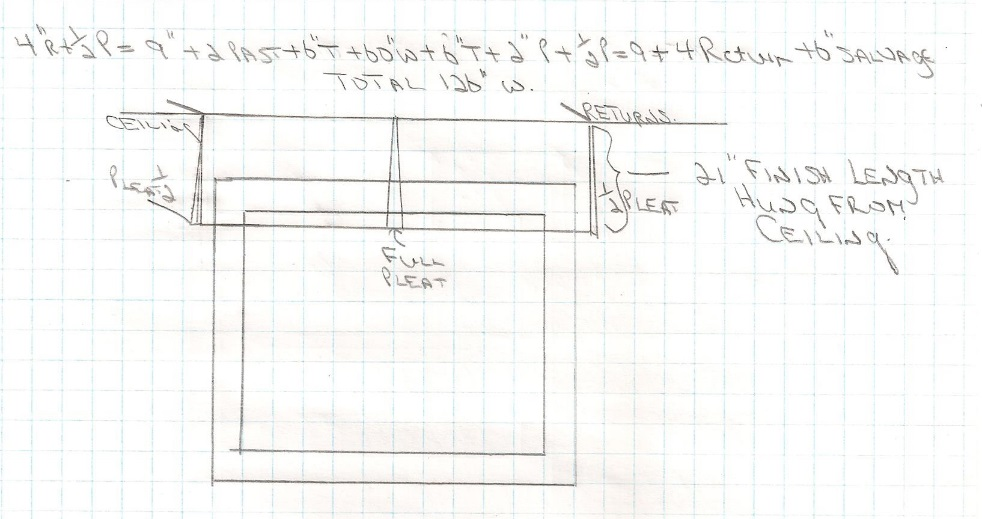 4"R+½P= 9"+2PAST+6"T+60"W+6"T+2"P+½P=9+4Return+6"SALVAGE
TOTAL 126" W.
CEILING
RETURNS.
PLEAT ½
½ PLEAT
21" FINISH LENGTH
HUNG FROM
CEILING.
FULL
PLEAT